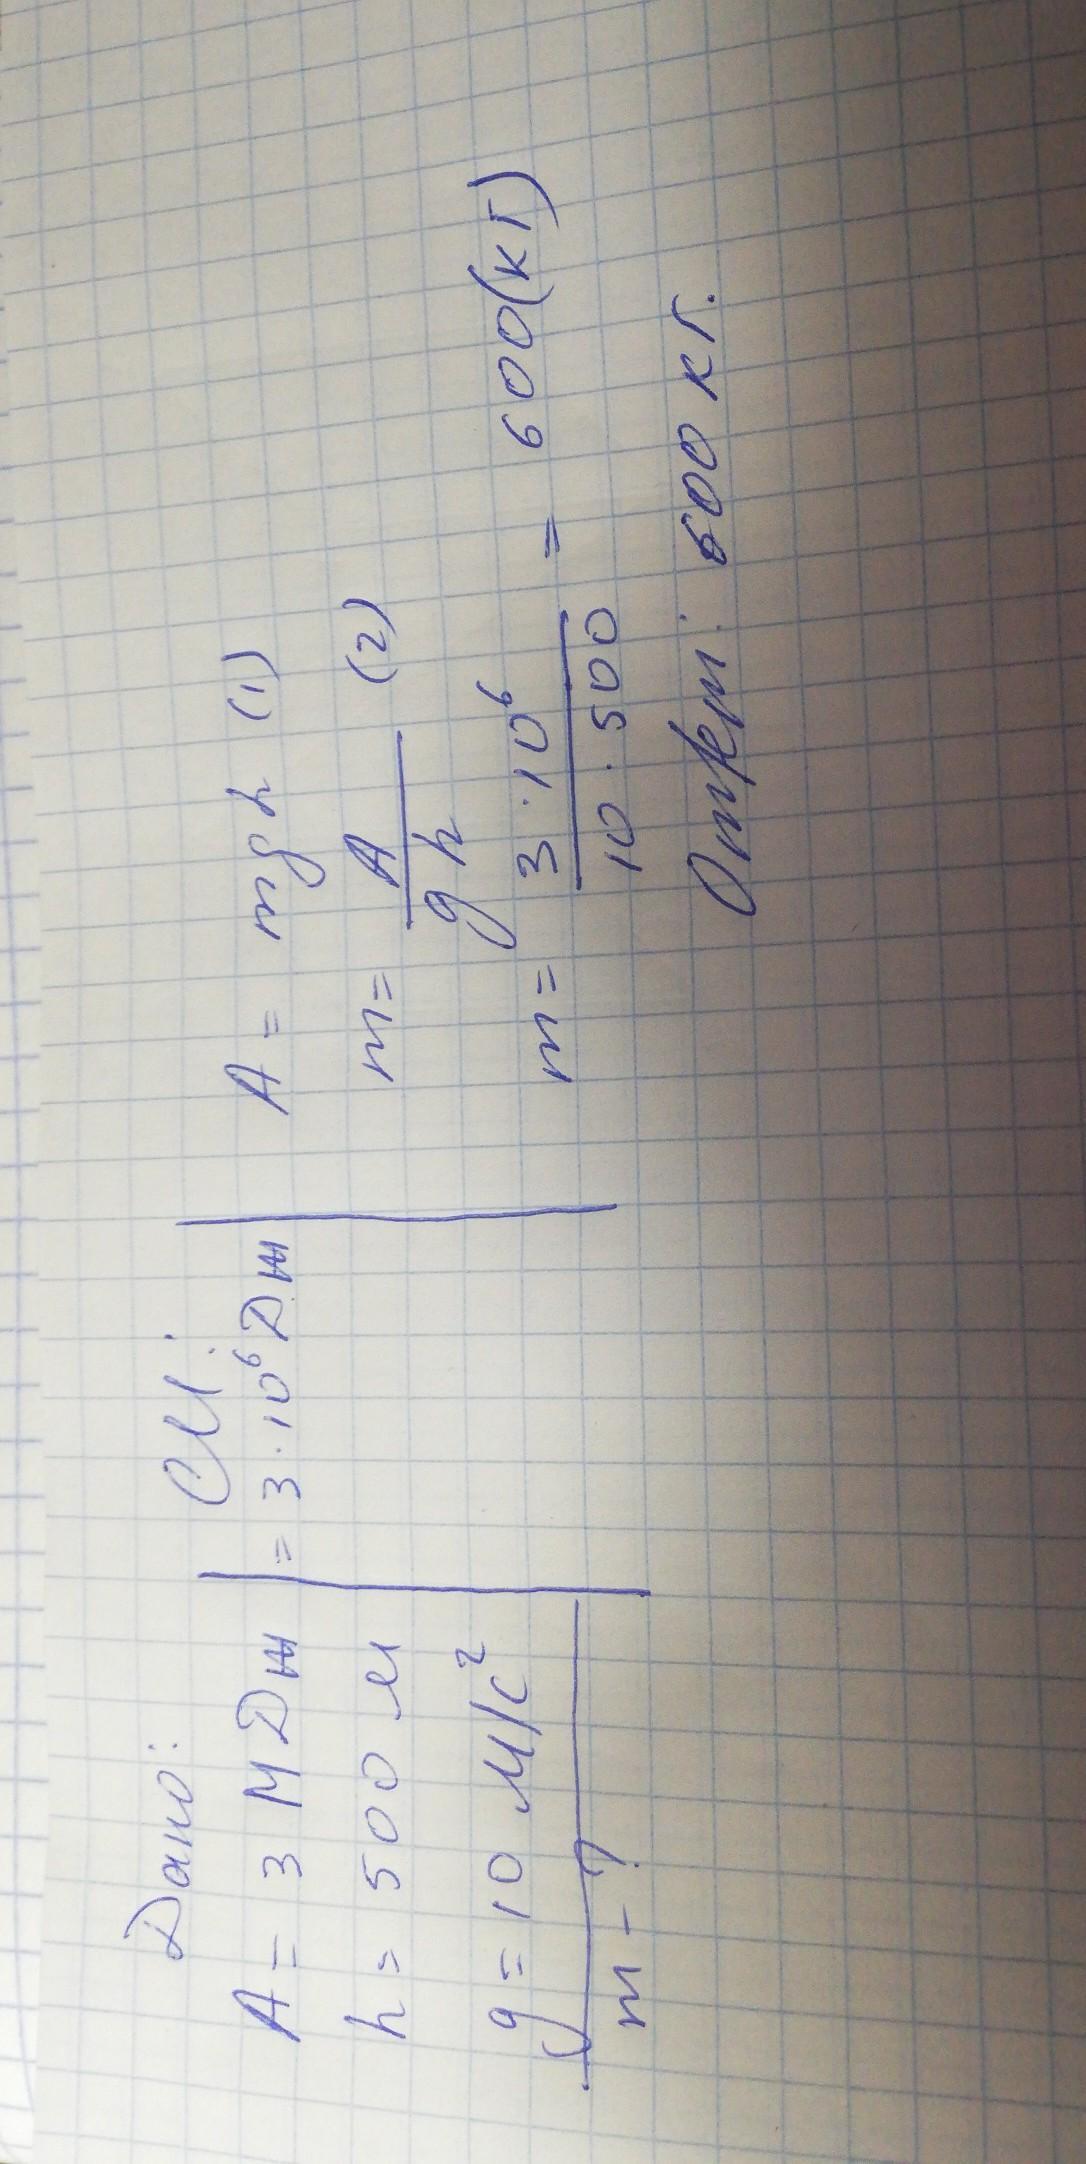 Дано:
A = 3 МДж
h = 500 м
g = 10 м/с²
m - ?
СИ:
= 3·10⁶ Дж
A = mgh (1)
m = A / gh (2)
m = 3·10⁶ / 10·500 = 600(кг)
Ответ: 600 кг.